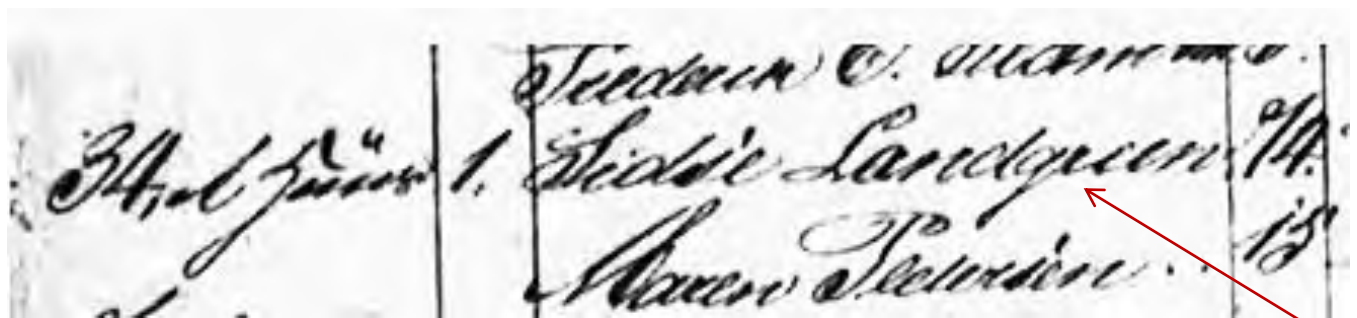 Frederik C.
34, et Huus 1. Sidsie Landgreen 74.
Maren Pedersen 15